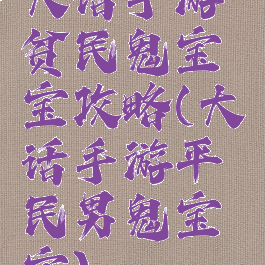 大话手游
贫民鬼宝
宝攻略(大
话手游平
民男鬼宝
宝)